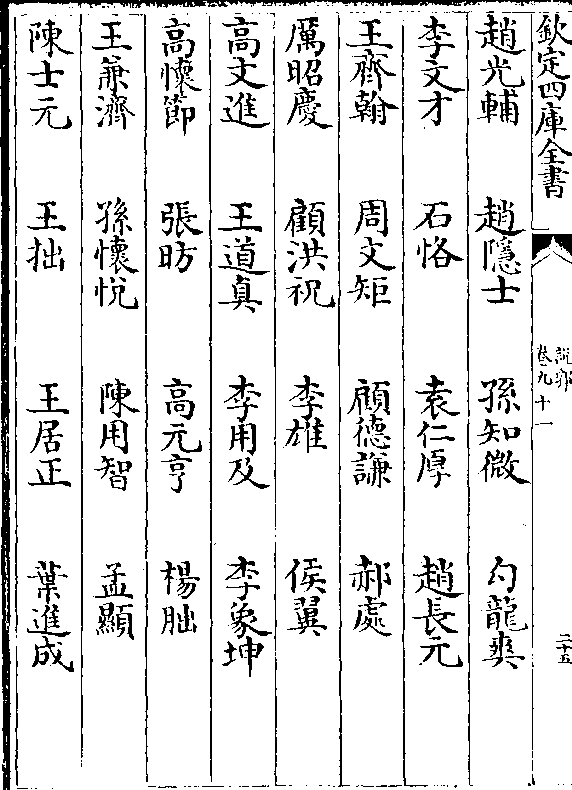 欽定四庫全書
說郛
卷九十一
二十五
趙光輔 趙隱士 孫知微 勾龍爽
李文才 石恪 袁仁厚 趙長元
王齊翰 周文矩 顧德謙 郝處
厲昭慶 顧洪祝 李雄 侯翼
高文進 王道真 李用及 李象坤
高懷節 張昉 高元亨 楊朏
王兼濟 孫懷悅 陳用智 孟顯
陳士元 王拙 王居正 葉進成